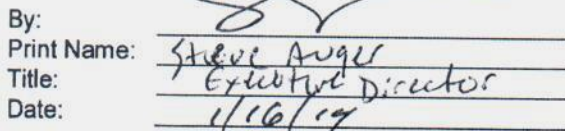 By:
Print Name: Steve Auger
Title: Executive Director
Date: 1/16/19